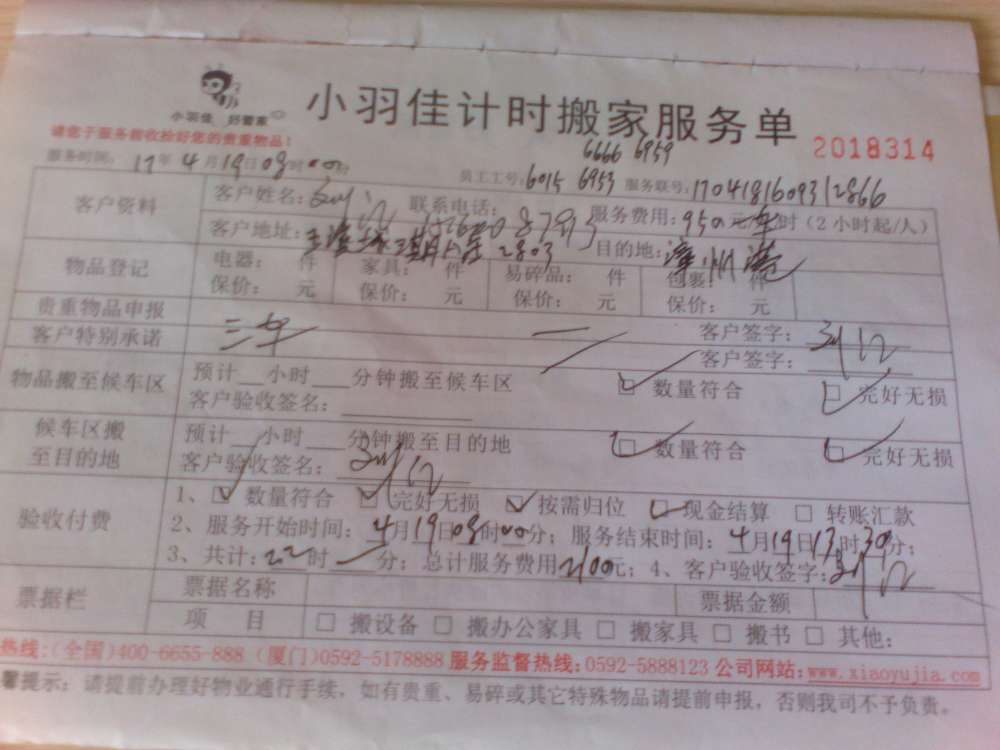 小羽佳 好管家
小羽佳计时搬家服务单
2018314
请您于服务前收拾好您的贵重物品!
6666 6959
服务时间: 17年4月19日08时00分
员工工号: 6015 6953 服务联号: 1704181609312866
客户资料
客户姓名: 联系电话: 服务费用: 950元/车时(2小时起/人)
客户地址: 2803 目的地: 漳州港
物品登记
电器: 件 家具: 件 易碎品: 件 包裹: 件
保价: 元 保价: 元 保价: 元 保价: 元
贵重物品申报
客户签字:
客户特别承诺
三车
客户签字:
物品搬至候车区
预计__小时__分钟搬至候车区 数量符合 完好无损
客户验收签名:
候车区搬至目的地
预计__小时__分钟搬至目的地 数量符合 完好无损
客户验收签名:
验收付费
1、数量符合 完好无损 按需归位 现金结算 转账汇款
2、服务开始时间: 4月19日08时00分; 服务结束时间: 4月19日13时30分;
3、共计: 22时 分; 总计服务费用2100元; 4、客户验收签字:
票据栏
票据名称 票据金额
项 目 搬设备 搬办公家具 搬家具 搬书 其他:
热线:(全国)400-6655-888 (厦门)0592-5178888 服务监督热线:0592-5888123 公司网站:www.xiaoyujia.com
馨提示: 请提前办理好物业通行手续,如有贵重、易碎或其它特殊物品请提前申报,否则我司不予负责。